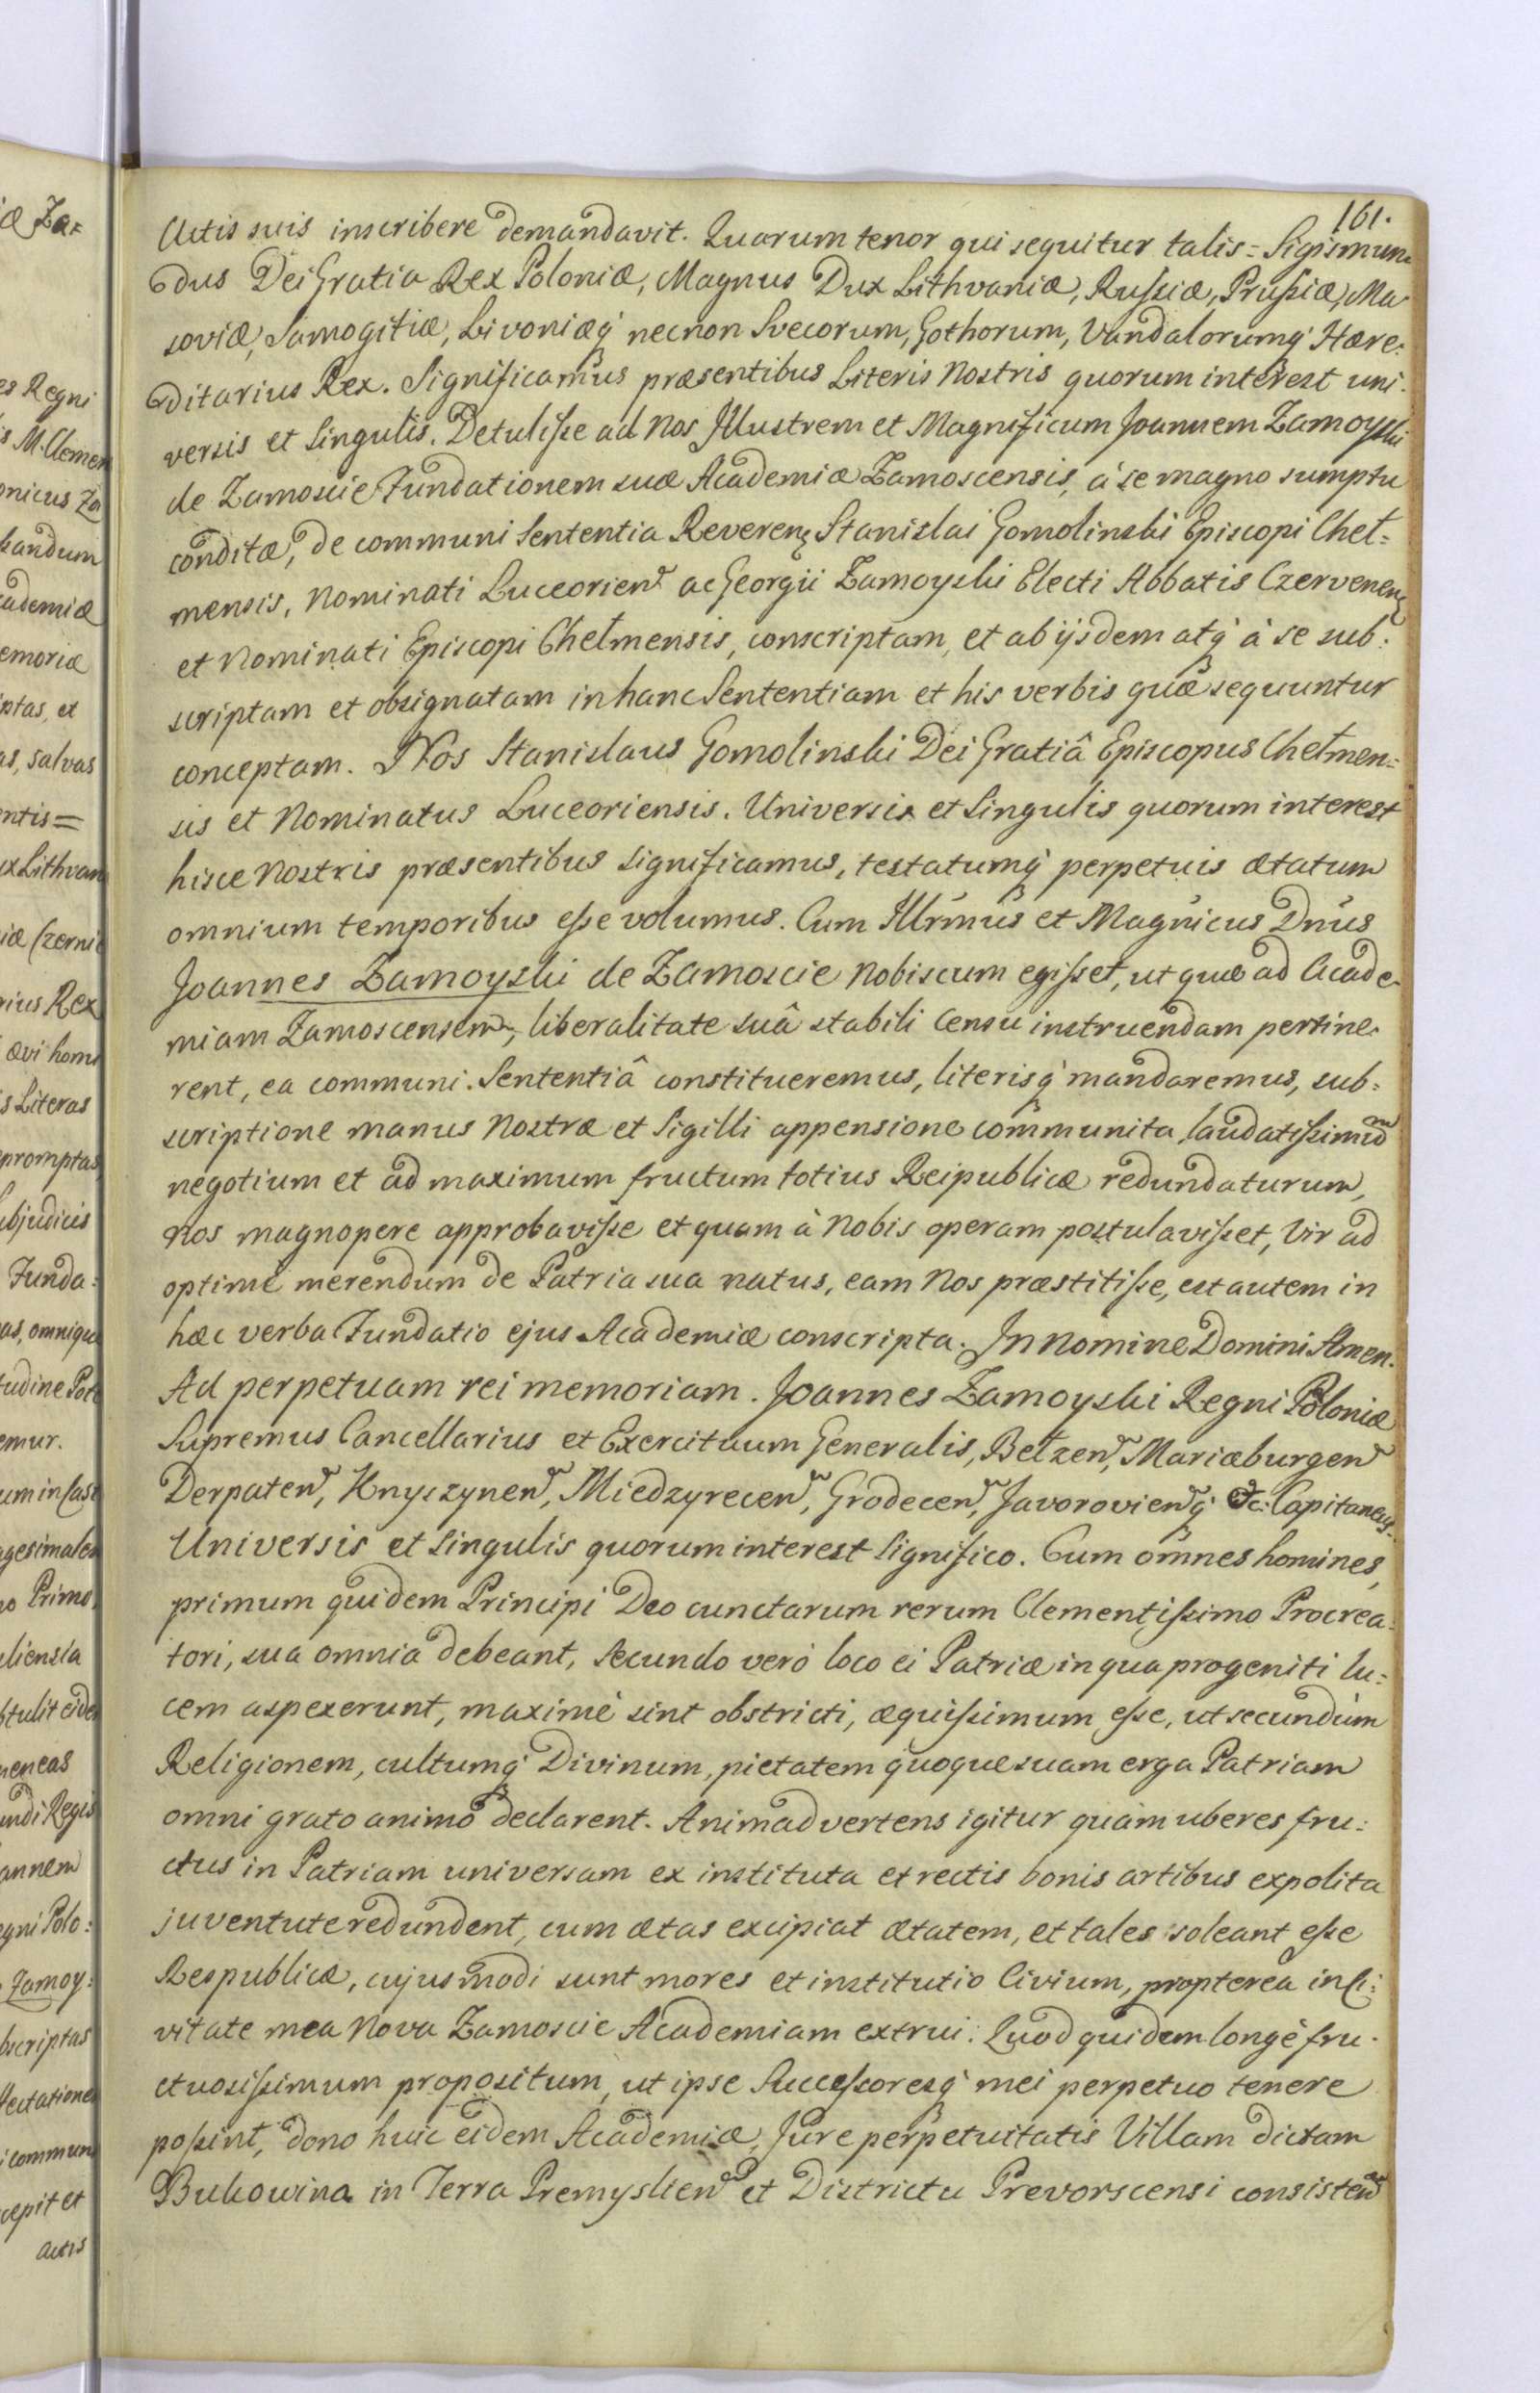 161.
Actis suis inscribere demandavit. Quarum tenor qui sequitur talis = Sigismun=
dus Dei Gratia Rex Poloniæ, Magnus Dux Lithvaniæ, Rußiæ, Prußiæ, Ma
soviæ, Samogitiæ, Livoniæq́ necnon Svecorum, Gothorum, Vandalorumq́ Hære=
ditarius Rex. Significamus præsentibus Literis Nostris quorum interest uni=
versis et Singulis. Detuliße ad Nos Illustrem et Magnificum Joannem Zamoyski
de Zamoscie Fundationem suæ Academiæ Zamoscensis, à se magno sumptu
conditæ, de communi Sententia Reverenȩ Stanislai Gomolinski Episcopi Cheł=
mensis, Nominati Luceorien̄ ac Georgii Zamoyski Electi Abbatis Czervenenȩ
et Nominati Episcopi Chełmensis, conscriptam, et ab ijsdem atq́ à se sub=
scriptam et obsignatam in hanc Sententiam et his verbis quæ sequuntur
conceptam. Nos Stanislaus Gomolinski Dei Gratiâ Episcopus Chełmen=
sis et Nominatus Luceoriensis. Universis et Singulis quorum interest
hisce Nostris præsentibus significamus, testatumq́ perpetuis ætatum
omnium temporibus eße volumus. Cum Illrm̃us et Magñicus Dñus
Joannes Zamoyski de Zamoscie Nobiscum egißet, ut quæ ad Acade=
miam Zamoscensem, liberalitate suâ stabili Censu instruendam pertine=
rent, ea communi Sententiâ constitueremus, literisq́ mandaremus, sub=
scriptione manus Nostræ et Sigilli appensione communita, laudatißimum
negotium et ad maximum fructum totius Reipublicæ redundaturum,
Nos magnopere approbaviße et quam à Nobis operam postulavißet, Vir ad
optimè merendum de Patria sua natus, eam Nos præstitiße, est autem in
hæc verba Fundatio ejus Academiæ conscripta. In Nomine Domini Amen.
Ad perpetuam rei memoriam. Joannes Zamoyski Regni Poloniæ
Supremus Cancellarius et Exercituum Generalis, Bełzen̄, Mariæburgen̄
Derpaten̄, Knyszynen̄, Miedzyrecen̄, Grodecen̄, Javorovien̄q́ &c: Capitaneus.
Universis et singulis quorum interest Significo. Cum omnes homines,
primum quidem Principi Deo cunctarum rerum Clementißimo Procrea=
tori, sua omnia debeant, secundo verò loco ei Patriæ in qua progeniti lu=
cem aspexerunt, maximè sint obstricti, æquißimum eße, ut secundùm
Religionem, cultumq́ Divinum, pietatem quoque suam erga Patriam
omni grato animo declarent. Animadvertens igitur quàm uberes fru=
ctus in Patriam universam ex instituta et rectis bonis artibus expolita
juventute redundent, cum ætas excipiat ætatem, et tales soleant eße
Respublicæ, cujusmodi sunt mores et institutio Civium, propterea in Ci=
vitate mea Nova Zamoscie Academiam extrui. Quod quidem longè fru=
ctuosißimum propositum, ut ipse Succeßoresq́ mei perpetuo tenere
poßint, dono huic eidem Academiæ, Jure perpetuitatis Villam dictam
Bukowina in Terra Premyslien̄ et Districtu Prevorscensi consisten̄